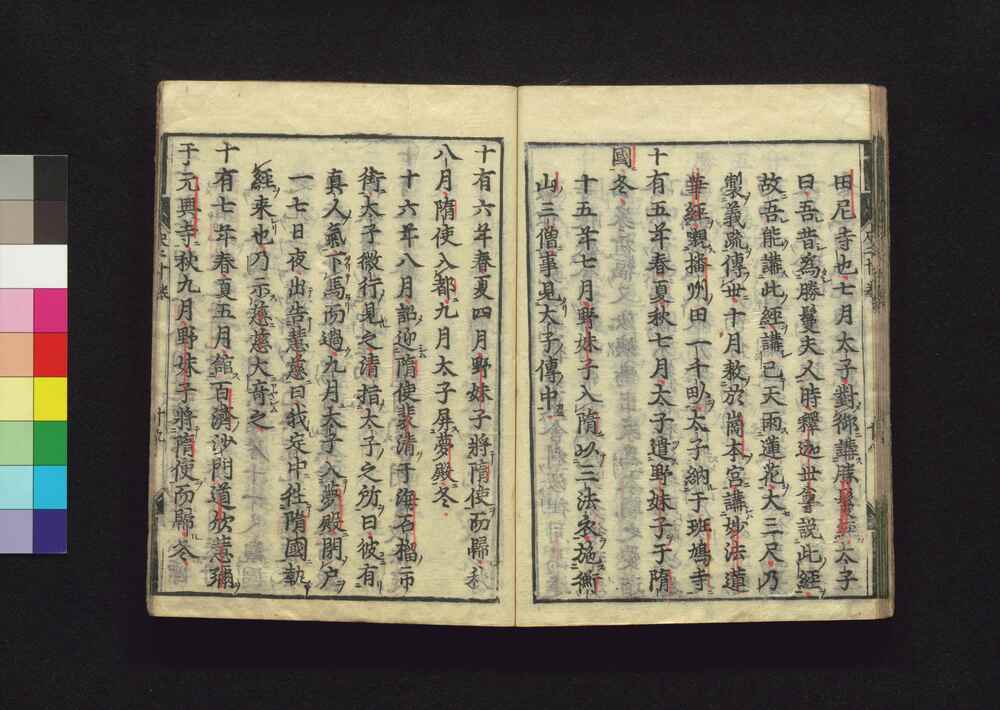 田尼寺也七月太子對御講勝鬘經太子
曰吾昔爲勝鬘夫人時釋迦世尊說此經
故吾能講此經講已天雨蓮花大三尺乃
製義疏傳世十月敕於崗本宮講妙法蓮
華經製播州田一千町太子納于班鳩寺
十有五年春夏秋七月太子遣野妹子于隋
國冬
十五年七月野妹子入隋以三法衣施衡
山三僧事見太子傳中
十有六年春夏四月野妹子將隋使而歸秋
八月隋使入都九月太子屏夢殿冬
十六年八月詔迎隋使裴清于海石榴市
街太子微行見之清指太子之所曰彼有
真人氣下馬而過九月太子入夢殿閉户
一七日夜出告慧慈曰我定中往隋國執
經来也乃示慈慈大奇之
十有七年春夏五月館百濟沙門道欣慧彌
于元興寺秋九月野妹子將隋使而歸冬